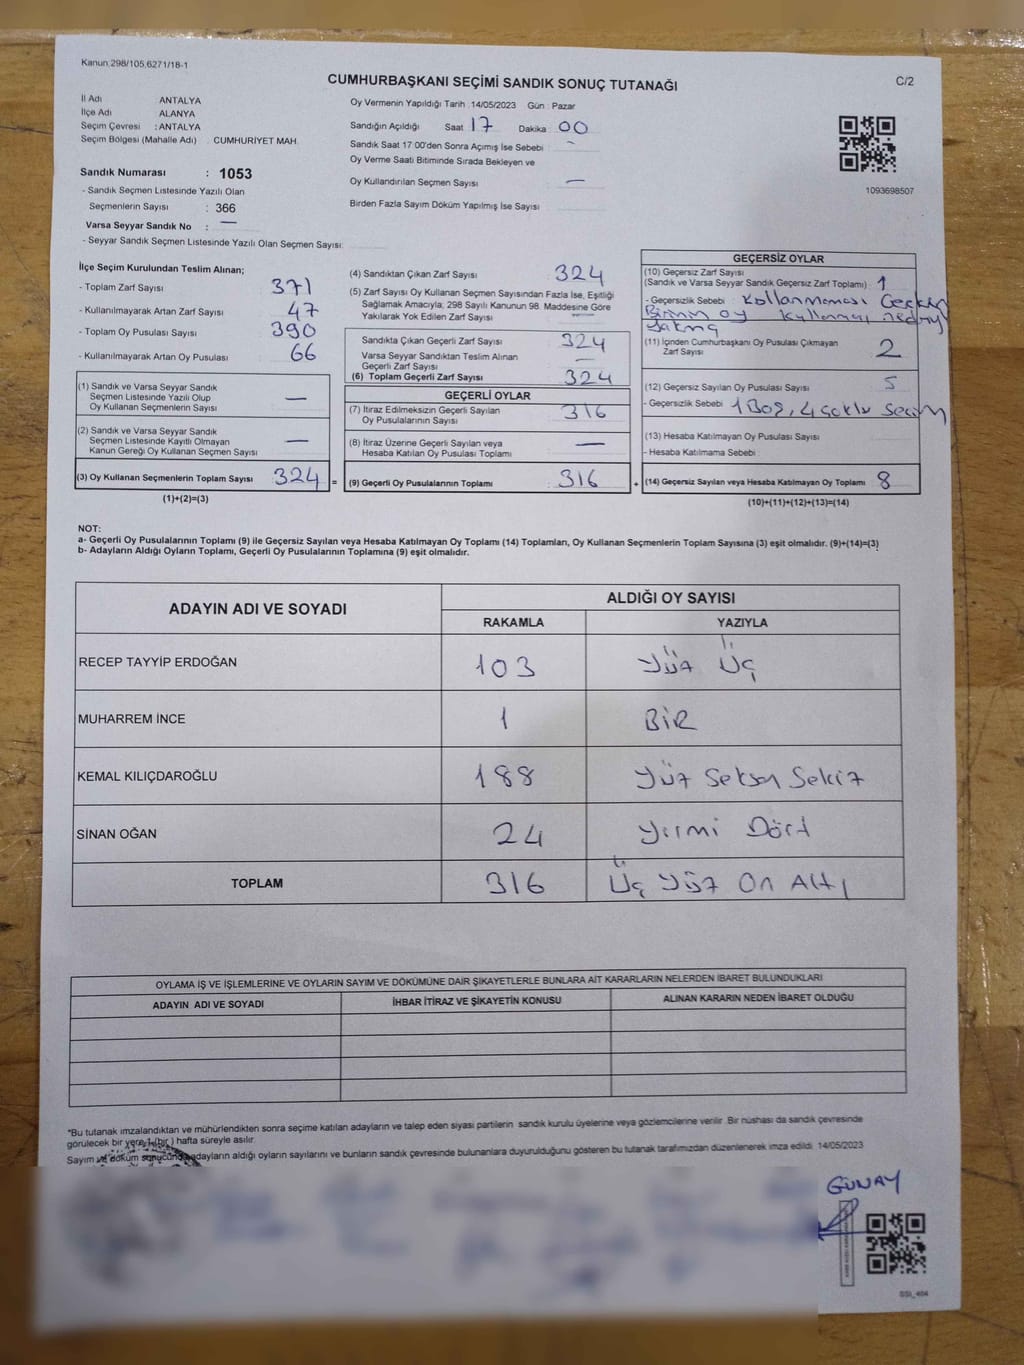 Kanun 298/105,6271/18-1
CUMHURBAŞKANI SEÇİMİ SANDIK SONUÇ TUTANAĞI
C/2
İl Adı ANTALYA
İlçe Adı ALANYA
Seçim Çevresi : ANTALYA
Seçim Bölgesi (Mahalle Adı) CUMHURİYET MAH.
Sandık Numarası : 1053
- Sandık Seçmen Listesinde Yazılı Olan
Seçmenlerin Sayısı : 366
Varsa Seyyar Sandık No : —
- Seyyar Sandık Seçmen Listesinde Yazılı Olan Seçmen Sayısı:
Oy Vermenin Yapıldığı Tarih : 14/05/2023 Gün : Pazar
Sandığın Açıldığı Saat 17 Dakika : 00
Sandık Saat 17:00'den Sonra Açımış İse Sebebi : -
Oy Verme Saati Bitiminde Sırada Bekleyen ve
Oy Kullandırılan Seçmen Sayısı —
Birden Fazla Sayım Döküm Yapılmış İse Sayısı
1093698507
İlçe Seçim Kurulundan Teslim Alınan;
- Toplam Zarf Sayısı : 371
- Kullanılmayarak Artan Zarf Sayısı : 47
- Toplam Oy Pusulası Sayısı : 390
- Kullanılmayarak Artan Oy Pusulası : 66
(1) Sandık ve Varsa Seyyar Sandık
Seçmen Listesinde Yazılı Olup
Oy Kullanan Seçmenlerin Sayısı : —
(2) Sandık ve Varsa Seyyar Sandık
Seçmen Listesinde Kayıtlı Olmayan
Kanun Gereği Oy Kullanan Seçmen Sayısı : —
(3) Oy Kullanan Seçmenlerin Toplam Sayısı : 324 =
(1)+(2)=(3)
(4) Sandıktan Çıkan Zarf Sayısı : 324
(5) Zarf Sayısı Oy Kullanan Seçmen Sayısından Fazla İse, Eşitliği
Sağlamak Amacıyla, 298 Sayılı Kanunun 98. Maddesine Göre
Yakılarak Yok Edilen Zarf Sayısı —
Sandıkta Çıkan Geçerli Zarf Sayısı : 324
Varsa Seyyar Sandıktan Teslim Alınan
Geçerli Zarf Sayısı : —
(6) Toplam Geçerli Zarf Sayısı : 324
GEÇERLİ OYLAR
(7) İtiraz Edilmeksizin Geçerli Sayılan
Oy Pusulalarının Sayısı : 316
(8) İtiraz Üzerine Geçerli Sayılan veya
Hesaba Katılan Oy Pusulası Toplamı : —
(9) Geçerli Oy Pusulalarının Toplamı : 316 +
GEÇERSİZ OYLAR
(10) Geçersiz Zarf Sayısı
(Sandık ve Varsa Seyyar Sandık Geçersiz Zarf Toplamı) : 1
- Geçersizlik Sebebi : Kollanmaması Geçken
Birinin oy kullanması
(11) İçinden Cumhurbaşkanı Oy Pusulası Çıkmayan
Zarf Sayısı : 2
(12) Geçersiz Sayılan Oy Pusulası Sayısı : 5
- Geçersizlik Sebebi : 1 Boş, 4 çoklu seçim
(13) Hesaba Katılmayan Oy Pusulası Sayısı :
- Hesaba Katılmama Sebebi :
(14) Geçersiz Sayılan veya Hesaba Katılmayan Oy Toplamı : 8
(10)+(11)+(12)+(13)=(14)
NOT:
a- Geçerli Oy Pusulalarının Toplamı (9) ile Geçersiz Sayılan veya Hesaba Katılmayan Oy Toplamı (14) Toplamları, Oy Kullanan Seçmenlerin Toplam Sayısına (3) eşit olmalıdır. (9)+(14)=(3)
b- Adayların Aldığı Oyların Toplamı, Geçerli Oy Pusulalarının Toplamına (9) eşit olmalıdır.
ADAYIN ADI VE SOYADI
ALDIĞI OY SAYISI
RAKAMLA YAZIYLA
RECEP TAYYİP ERDOĞAN 103 Yüz Üç
MUHARREM İNCE 1 BİR
KEMAL KILIÇDAROĞLU 188 Yüz Seksen Sekiz
SİNAN OĞAN 24 Yirmi Dört
TOPLAM 316 Üç Yüz On Altı
OYLAMA İŞ VE İŞLEMLERİNE VE OYLARIN SAYIM VE DÖKÜMÜNE DAİR ŞİKAYETLERLE BUNLARA AİT KARARLARIN NELERDEN İBARET BULUNDUKLARI
ADAYIN ADI VE SOYADI İHBAR İTİRAZ VE ŞİKAYETİN KONUSU ALINAN KARARIN NEDEN İBARET OLDUĞU
*Bu tutanak imzalandıktan ve mühürlendikten sonra seçime katılan adayların ve talep eden siyasi partilerin sandık kurulu üyelerine veya gözlemcilerine verilir. Bir nüshası da sandık çevresinde
görülecek bir yere 1 (bir ) hafta süreyle asılır.
Sayım ve döküm sonucunda adayların aldığı oyların sayılarını ve bunların sandık çevresinde bulunanlara duyurulduğunu gösteren bu tutanak tarafımızdan düzenlenerek imza edildi. 14/05/2023
GÜNAY
SSI_404